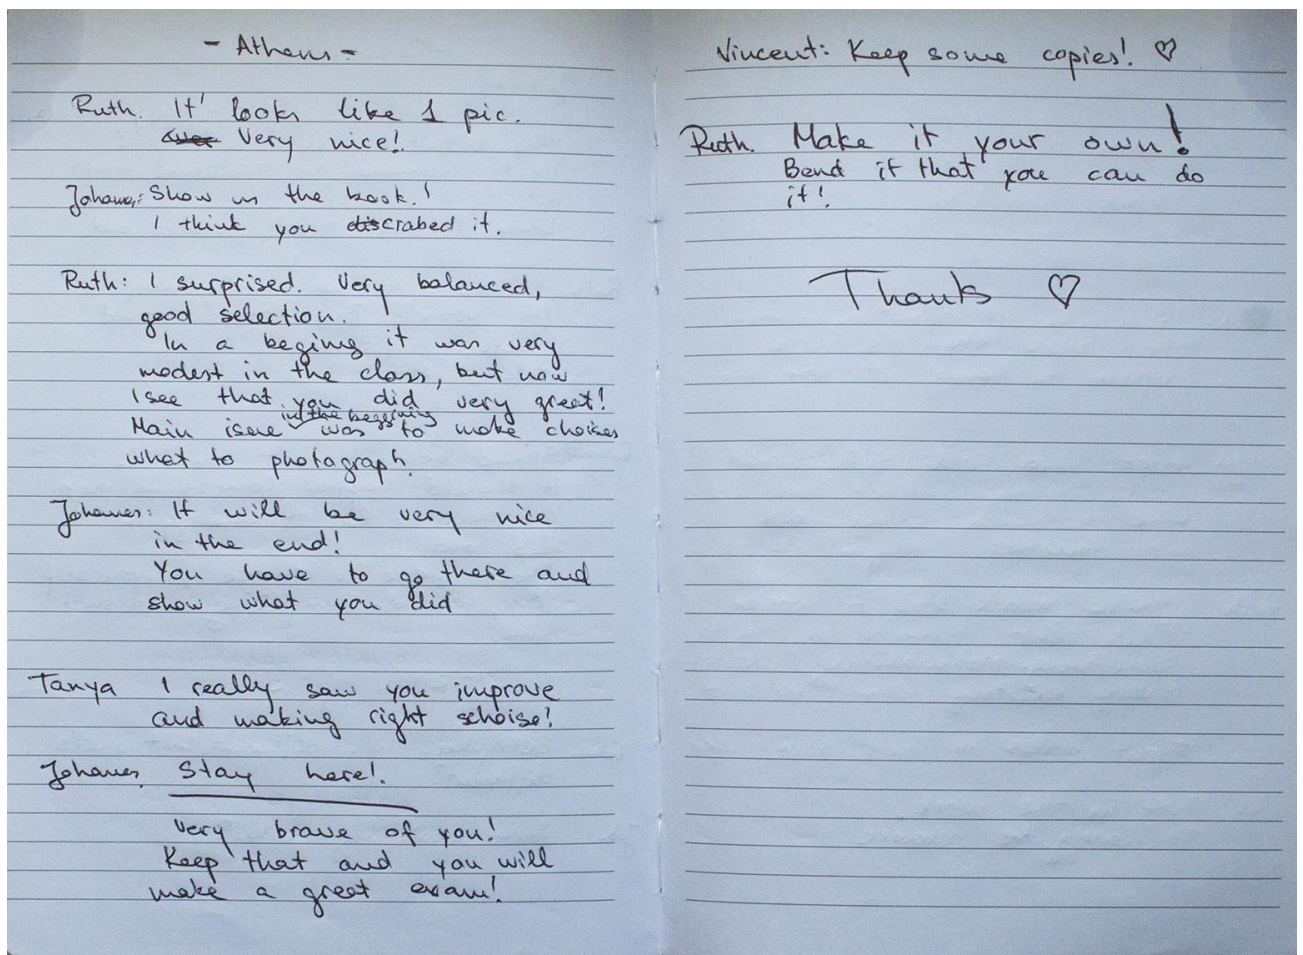 - Athens -
Ruth. It' looks like 1 pic.
Very nice!
Johanes: Show us the book!
I think you discrabed it.
Ruth: I surprised. Very balanced,
good selection.
In a begining it was very
modest in the class, but now
I see that you did very great!
in the beggining
Main isue was to make choises
what to photograph.
Johanes: It will be very nice
in the end!
You have to go there and
show what you did
Tanya I really saw you improve
and making right schoise!
Johanes. Stay here!
Very brave of you!
Keep that and you will
make a great exam!
Vincent: Keep some copies! ♡
Ruth. Make it your own!
Bend it that you can do
it!
Thanks ♡